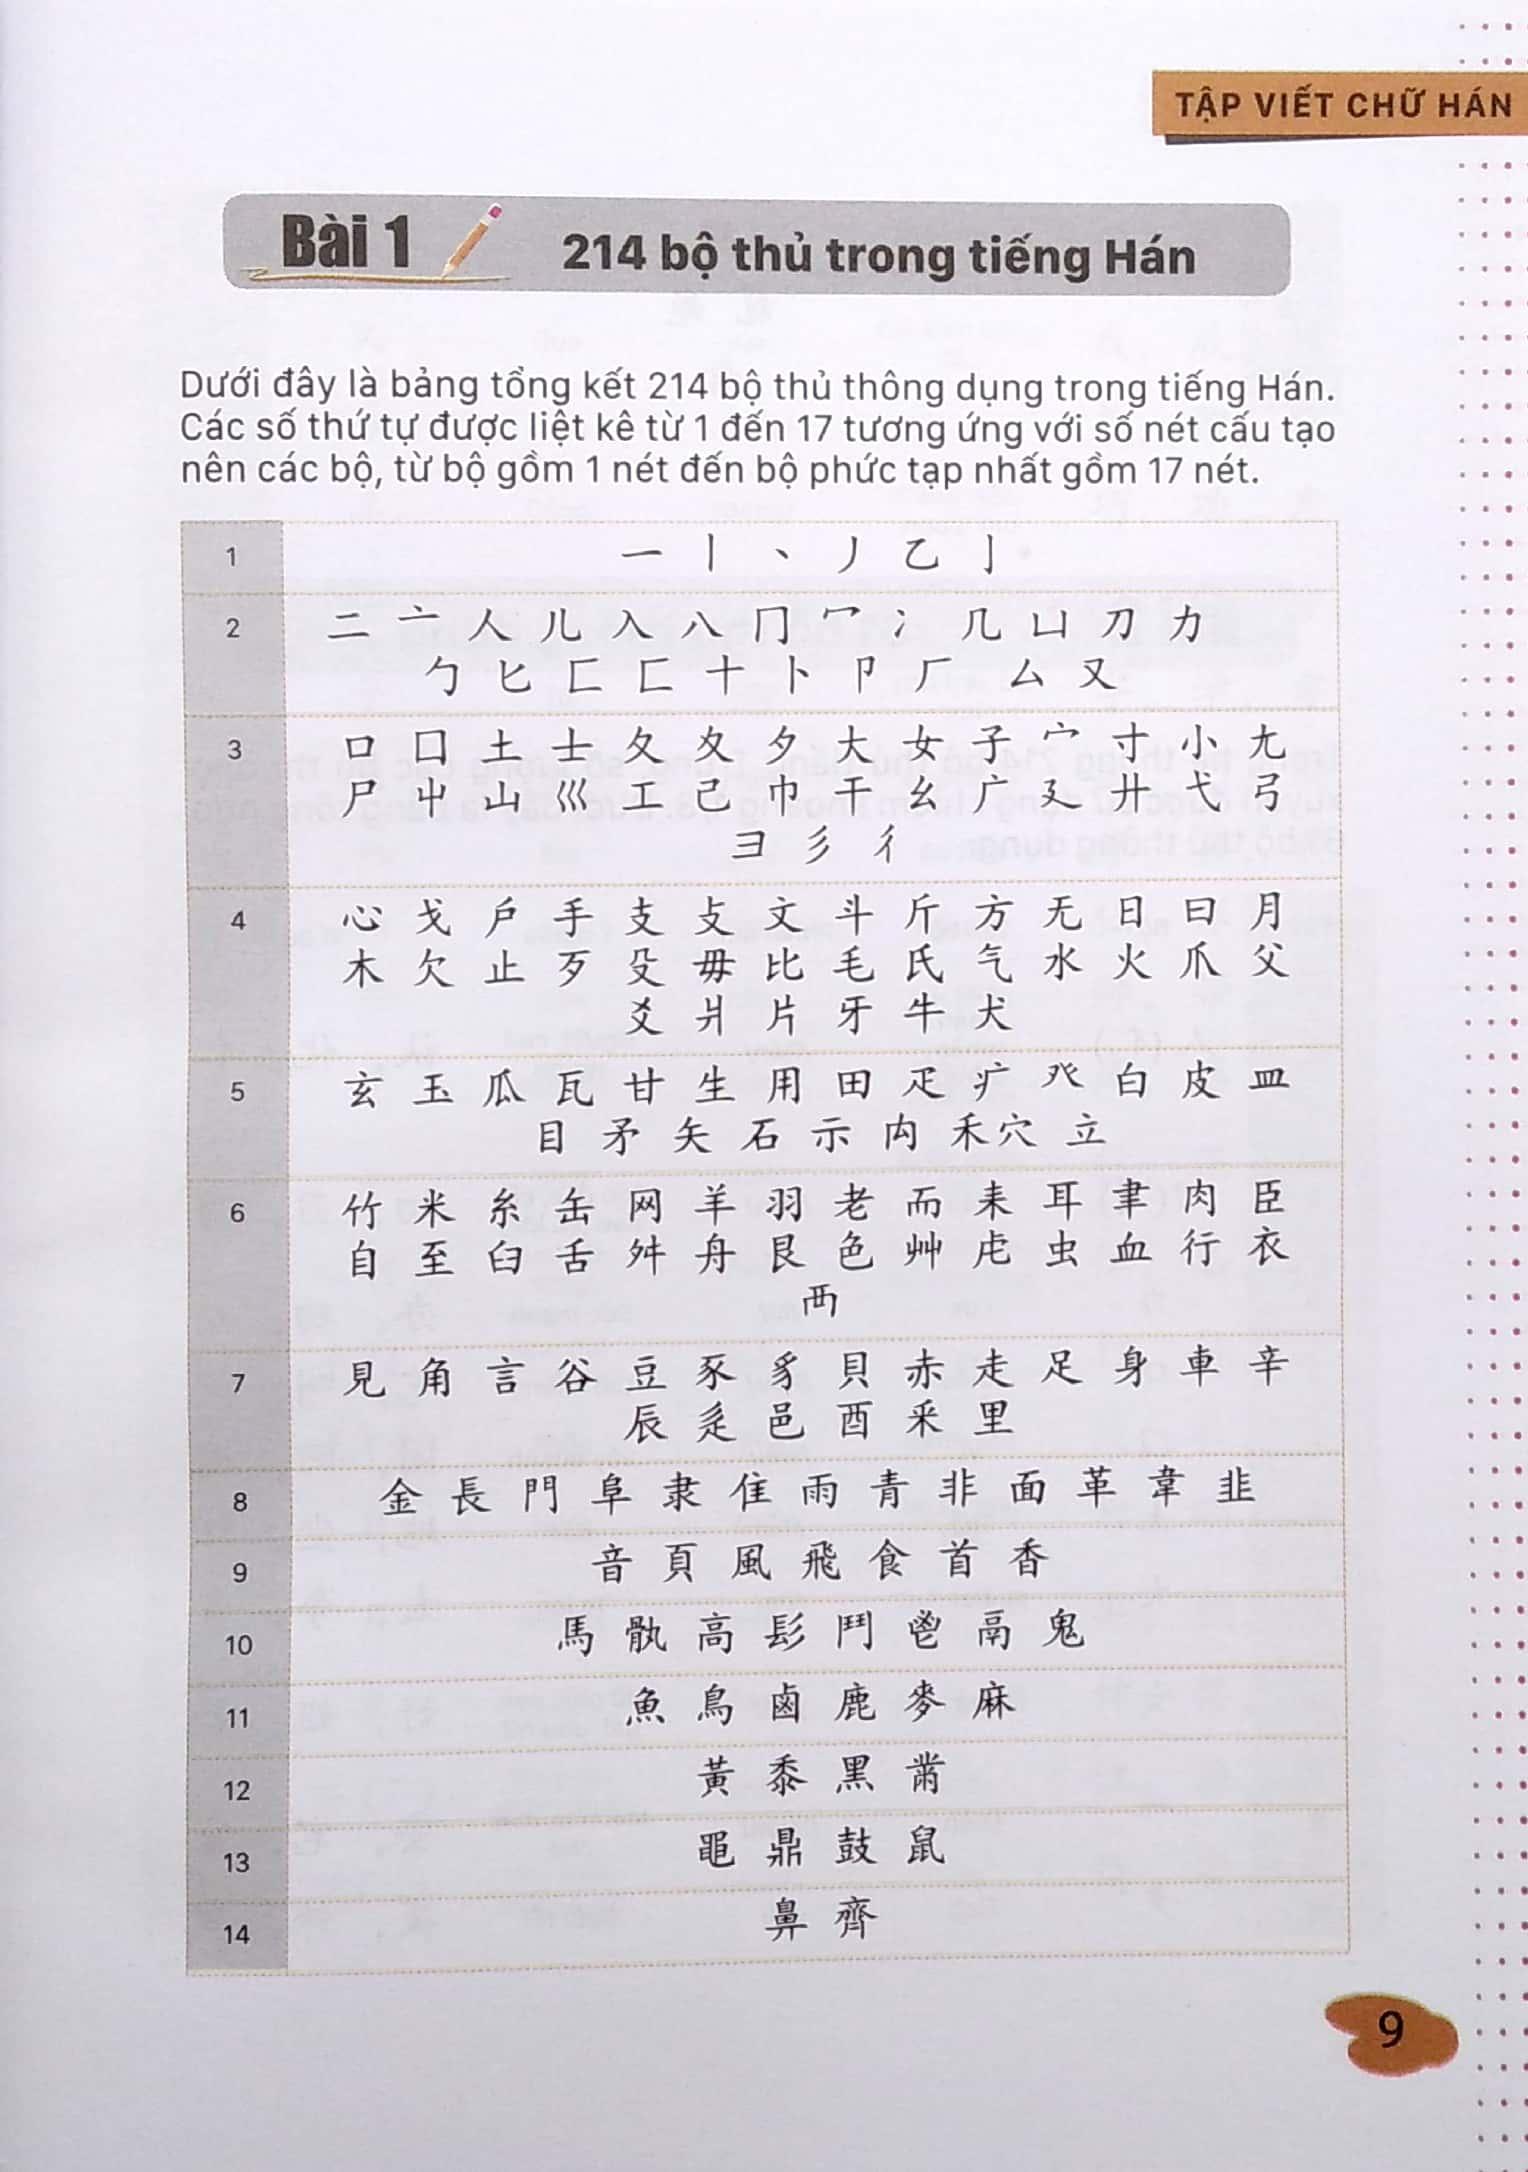 TẬP VIẾT CHỮ HÁN
Bài 1 214 bộ thủ trong tiếng Hán
Dưới đây là bảng tổng kết 214 bộ thủ thông dụng trong tiếng Hán.
Các số thứ tự được liệt kê từ 1 đến 17 tương ứng với số nét cấu tạo
nên các bộ, từ bộ gồm 1 nét đến bộ phức tạp nhất gồm 17 nét.
1 一 丨 丶 丿 乙 亅
2 二 亠 人 儿 入 八 冂 冖 冫 几 凵 刀 力
勹 匕 匚 匸 十 卜 卩 厂 厶 又
3 口 囗 土 士 夂 夊 夕 大 女 子 宀 寸 小 尢
尸 屮 山 巛 工 己 巾 干 幺 广 廴 廾 弋 弓
彐 彡 彳
4 心 戈 戶 手 支 攴 文 斗 斤 方 无 日 曰 月
木 欠 止 歹 殳 毋 比 毛 氏 气 水 火 爪 父
爻 爿 片 牙 牛 犬
5 玄 玉 瓜 瓦 甘 生 用 田 疋 疒 癶 白 皮 皿
目 矛 矢 石 示 禸 禾 穴 立
6 竹 米 糸 缶 网 羊 羽 老 而 耒 耳 聿 肉 臣
自 至 臼 舌 舛 舟 艮 色 艸 虍 虫 血 行 衣
襾
7 見 角 言 谷 豆 豕 豸 貝 赤 走 足 身 車 辛
辰 辵 邑 酉 釆 里
8 金 長 門 阜 隶 隹 雨 青 非 面 革 韋 韭
9 音 頁 風 飛 食 首 香
10 馬 骩 高 髟 鬥 鬯 鬲 鬼
11 魚 鳥 鹵 鹿 麥 麻
12 黃 黍 黑 黹
13 黽 鼎 鼓 鼠
14 鼻 齊
9